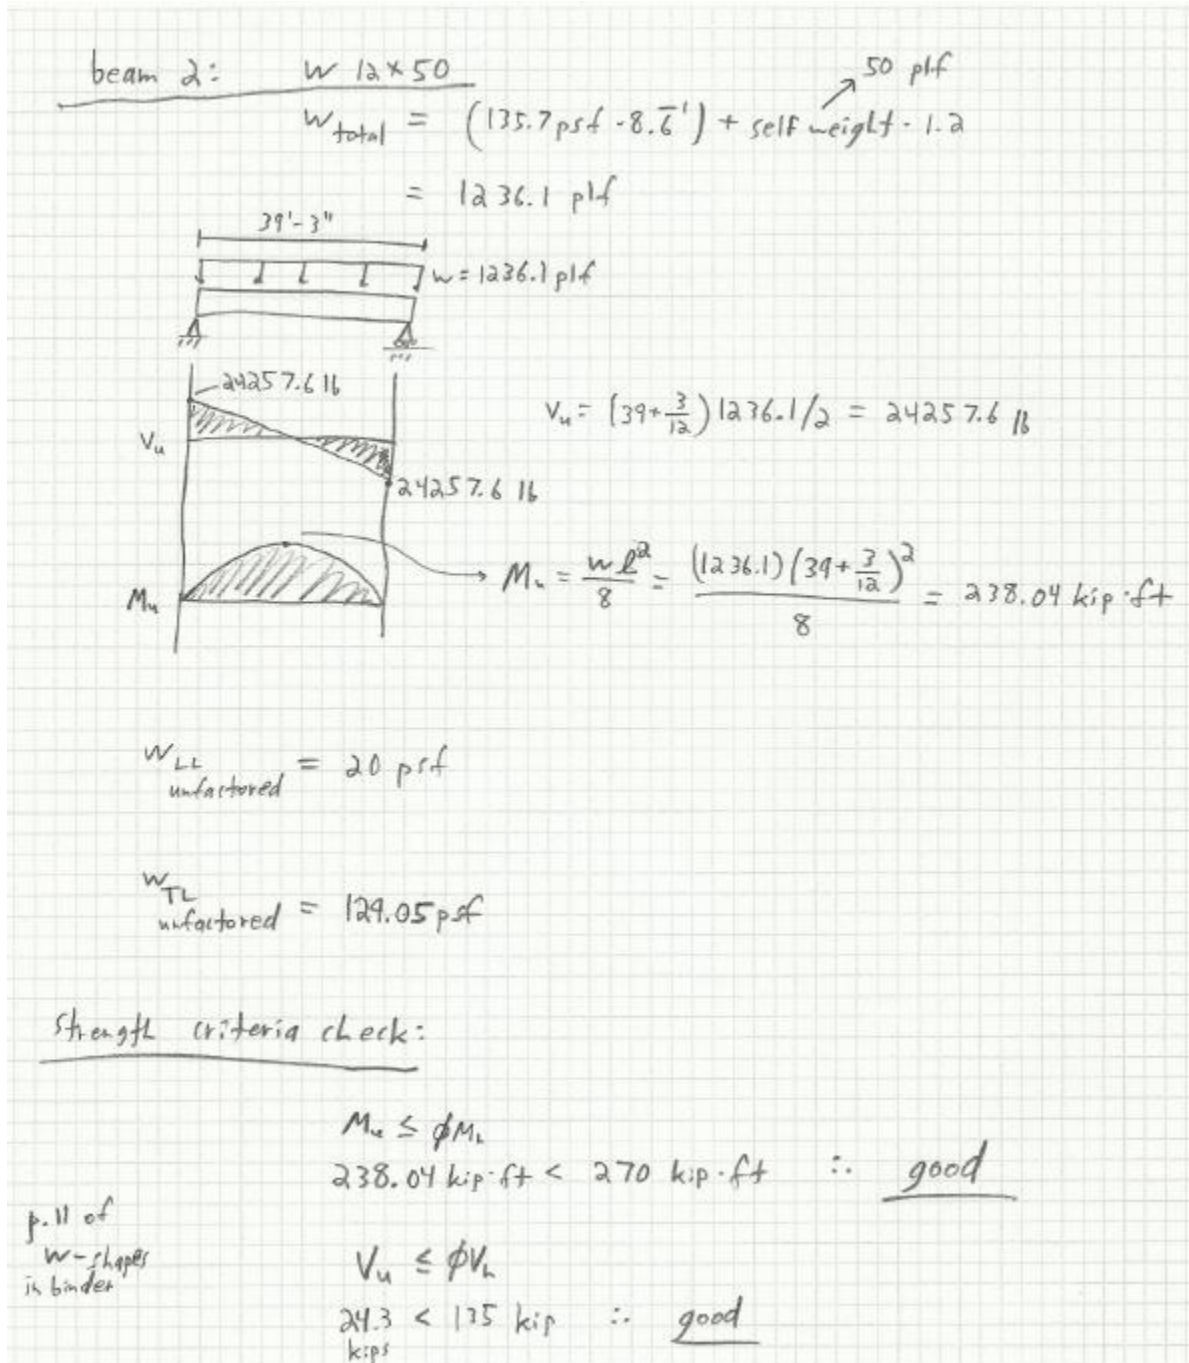 beam 2: W 12×50
50 plf
W total = (135.7 psf · 8.6̅') + self weight · 1.2
= 1236.1 plf
39'-3"
w = 1236.1 plf
24257.6 lb
Vu = (39+3/12) 1236.1/2 = 24257.6 lb
Vu
24257.6 lb
Mu = wℓ²/8 = (1236.1)(39+3/12)²/8 = 238.04 kip·ft
Mu
W LL unfactored = 20 psf
W TL unfactored = 129.05 psf
Strength criteria check:
Mu ≤ ϕMn
238.04 kip·ft < 270 kip·ft ∴ good
p.11 of
W-shapes
in binder
Vu ≤ ϕVn
24.3 < 135 kip ∴ good
kips